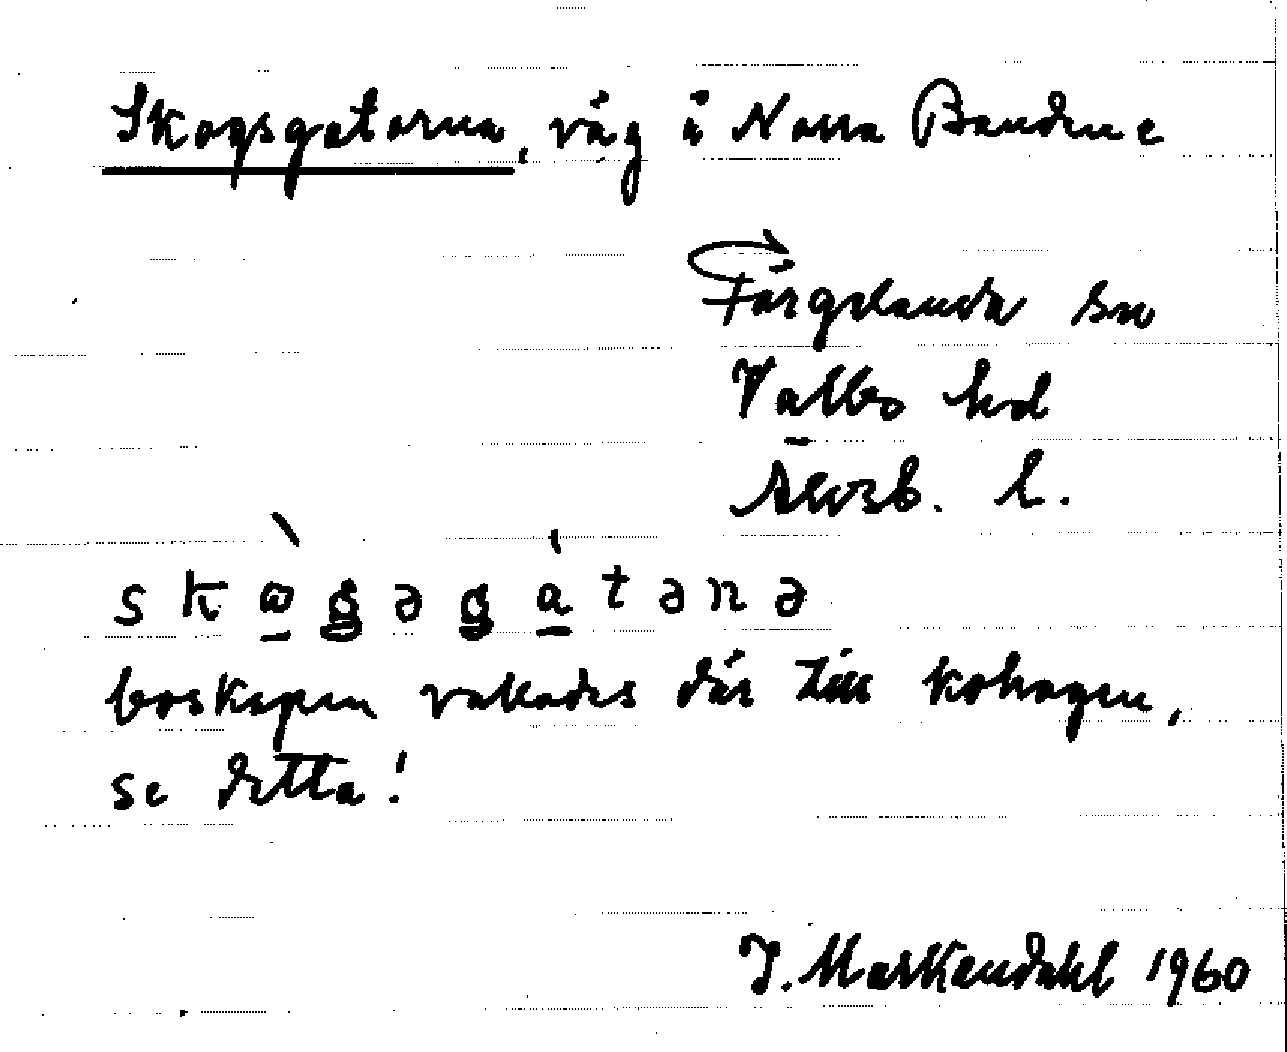 Skogsgatorna, väg i Norra Bandene
Färgelanda sn
Valbo hd
Älvsb. l.
skωgəgatənə
boskapen vallades där till kohagen,
se detta!
J. Markendahl 1960